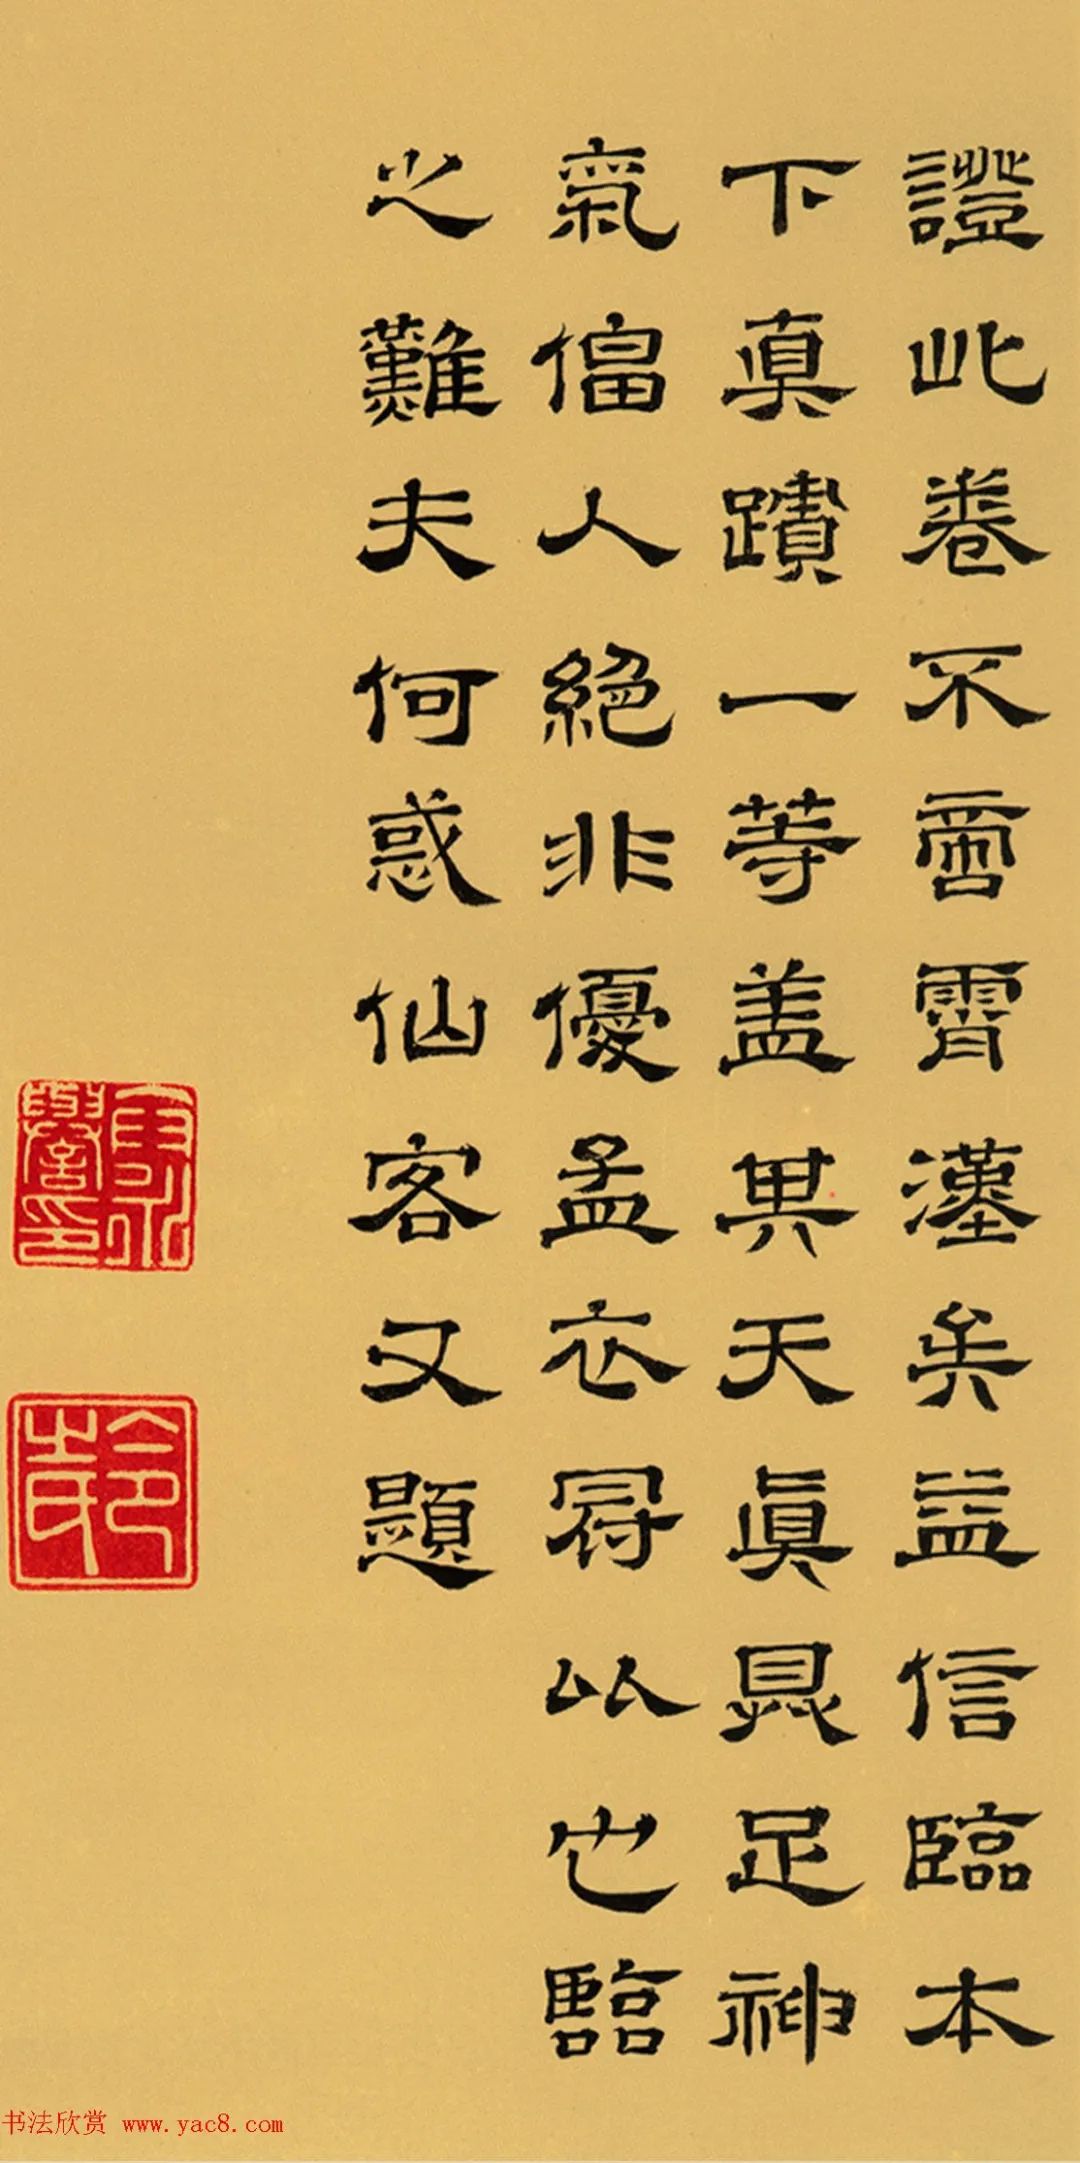 證此卷不啻霄漢矣益信臨本
下真蹟一等盖其天真具足神
氣偪人絕非優孟衣冠以也臨
之難夫何惑仙客又題
书法欣赏 www.yac8.com